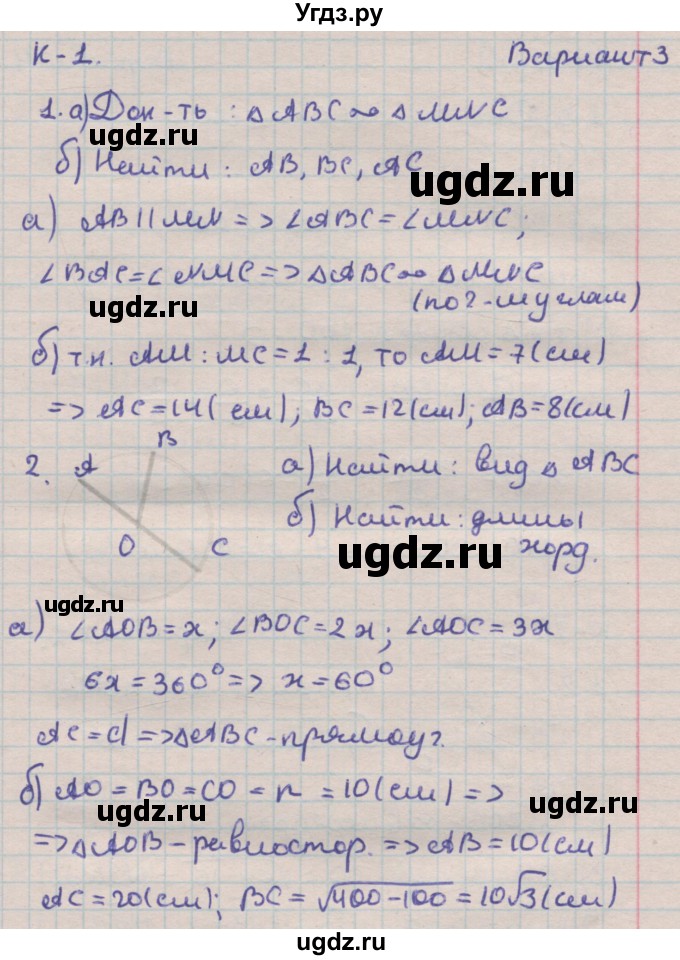 Угдз.ру
К-1. Вариант 3
1. а) Док-ть : △ABC ∼ △MNC
б) Найти : AB, BC, AC
ugdz.ru
ugdz.ru
а) AB || MN => ∠ABC = ∠MNC;
∠BAC = ∠NMC => △ABC ∼ △MNC
ugdz.ru
(по 2-м углам)
б) т.к. AM : MC = 1 : 1, то AM = 7 (см)
=> AC = 14 (см); BC = 12 (см); AB = 8 (см)
2. A B O C
а) Найти : вид △ ABC
ugdz.ru
б) Найти : длины
хорд.
ugdz.ru
ugdz.ru
а) ∠AOB = x; ∠BOC = 2x; ∠AOC = 3x
6x = 360° => x = 60°
ugdz.ru
AC = d => △ABC - прямоуг.
б) AO = BO = CO = r = 10 (см) =>
ugdz.ru
ugdz.ru
=> △AOB - равностор. => AB = 10 (см)
AC = 20 (см); BC = √400-100 = 10√3 (см)
ugdz.ru
ugdz.ru
ugdz.ru